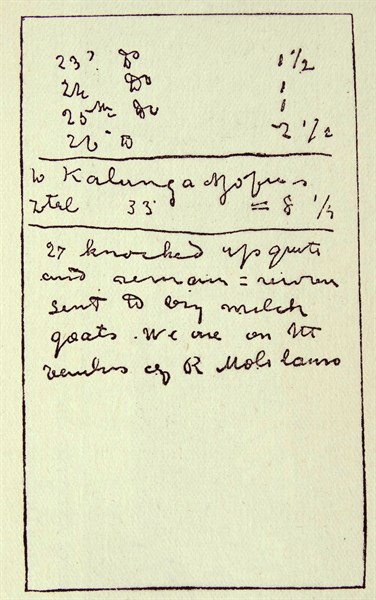 23d Do 1 1/2
24 Do 1
25th Do 1
26 Do 2 1/2
to Kalunganjofus
total 33 = 8 1/4
27 knocked up quite
and remain = recover
sent to buy milch
goats. We are on the
banks of R Molilamo